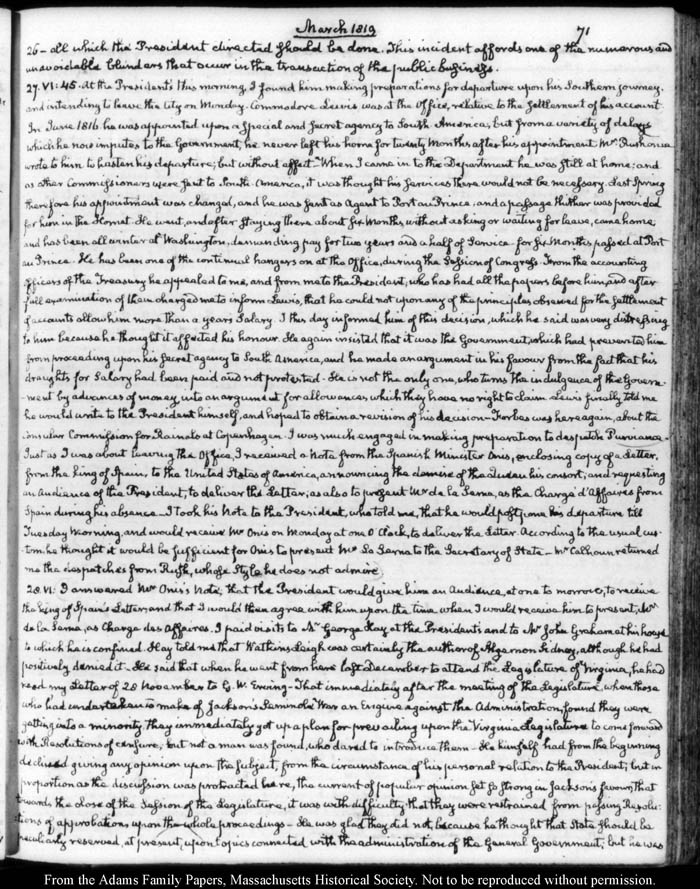 March 1819
71
26 - all which the President directed should be done. This incident affords one of the numerous and
unavoidable blunders that occur in the transaction of the public business.
27. VI: 45. At the President's this morning, I found him making preparations for departure upon his Southern journey,
and intending to leave the City on Monday. Commodore Lewis was at the Office, relative to the settlement of his account.
In June 1816 he was appointed upon a Special and Secret agency to South America, but from a variety of delays
which he now imputes to the Government, he never left his home for twenty Months after his appointment. Mr. Rush once
wrote to him to hasten his departure; but without effect. When I came in to the Department he was still at home; and
as other Commissioners were sent to South America, it was thought his Services there would not be necessary. Last Spring
therefore his appointment was changed, and he was sent as Agent to Port au Prince, and a passage thither was provided
for him in the Hornet. He went, and after staying there about six Months, without asking or waiting for leave, came home;
and has been all winter at Washington, demanding pay for two years and a half of Service - for six Months passed at Port
au Prince. He has been one of the continual hangers on at the Office, during the Session of Congress. From the accounting
Officers of the Treasury he appealed to me, and from me to the President, who has had all the papers before him, and after
full examination of them charged me to inform Lewis, that he could not upon any of the principles observed for the settlement
of accounts allow him more than a years Salary. I this day informed him of this decision, which he said was very distressing
to him because he thought it affected his honour. He again insisted that it was the Government, which had prevented him
from proceeding upon his Secret agency to South America, and he made an argument in his favour from the fact that his
draughts for Salary had been paid and not protested - He is not the only one, who turns the indulgence of the Govern-
ment by advances of money, into an argument for allowances which they have no right to claim. Lewis finally told me
he would write to the President himself, and hoped to obtain a revision of his decision - Forbes was here again, about the
Consular Commission for Rainals at Copenhagen. I was much engaged in making preparation to despatch Purviance -
Just as I was about leaving the Office, I received a Note from the Spanish Minister Onis, enclosing copy of a Letter,
from the King of Spain, to the United States of America, announcing the demise of the Queen his consort, and requesting
an Audience of the President, to deliver the Letter, as also to present Mr de la Serna, as the Chargé d'Affaires from
Spain during his absence - I took his Note to the President, who told me, that he would postpone his departure till
Tuesday Morning, and would receive Mr Onis on Monday at one O'Clock, to deliver the Letter. According to the usual cus-
tom he thought it would be sufficient for Onis to present Mr La Serna to the Secretary of State - Mr Calhoun returned
me the despatches from Rush, whose Style he does not admire
28. VI: I answered Mr Onis's Note, that the President would give him an Audience, at one to morrow, to receive
the King of Spain's Letter, and that I would then agree with him upon the time when I would receive him to present, Mr
de la Serna, as Chargé des Affaires. I paid visits to Mr George Hay at the President's and to Mr John Graham at his house
to which he is confined. Hay told me that Watkins Leigh was certainly the author of Algernon Sidney, although he had
positively denied it - He said that when he went from here last December to attend the Legislature of Virginia, he had
read my Letter of 28 November to G. W. Erving - That immediately after the meeting of the Legislature, when those
who had undertaken to make of Jackson's Seminole War an Engine against the Administration, found they were
getting into a minority they immediately got up a plan for prevailing upon the Virginia Legislature to come forward
with Resolutions of censure; but not a man was found, who dared to introduce them - He himself had from the beginning
declined giving any opinion upon the subject, from the circumstance of his personal relation to the President; but in
proportion as the discussion was protracted here, the current of popular opinion set so strong in Jackson's favour, that
towards the close of the Session of the Legislature, it was with difficulty that they were restrained from passing Resolu-
tions of approbation, upon the whole proceedings - He was glad they did not, because he thought that State should be
peculiarly reserved, at present, upon topics connected with the administration of the General Government; but he was
From the Adams Family Papers, Massachusetts Historical Society. Not to be reproduced without permission.